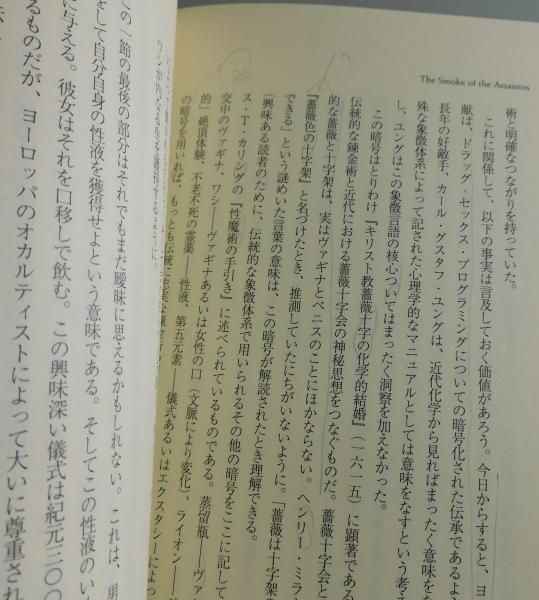 The Smoke of the Assassins
術と明確なつながりを持っていた。
これに関係して、以下の事実は言及しておく価値があろう。今日からすると、ヨ
献は、ドラッグ・セックス・プログラミングについての暗号化された伝承であるよ
長年の好敵手、カール・グスタフ・ユングは、近代化学から見ればまったく意味をな
殊な象徴体系によって記された心理学的なマニュアルとしては意味をなすという考え
し、ユングはこの象徴言語の核心ついてはまったく洞察を加えなかった。
この暗号はとりわけ『キリスト教薔薇十字の化学的結婚』(一六一五)に顕著である
伝統的な錬金術と近代における薔薇十字会の神秘思想をつなぐものだ。薔薇十字会と
的な薔薇と十字架は、実はヴァギナとペニスのことにほかならない。ヘンリー・ミラ
『薔薇色の十字架』と名づけたとき、推測していたにちがいないように。「薔薇は十字架の
できる」という謎めいた言葉の意味は、この暗号が解読されたとき理解できる。
(興味ある読者のために、伝統的な象徴体系で用いられるその他の暗号をここに記して
ス・T・カリングの『性魔術の手引き』に述べられているものである。蒸留瓶――ヴァ
交中のヴァギナ、ワシ――ヴァギナあるいは女性の口(文脈により変化)、ライオン――
的」絶頂体験、不老不死の霊薬――性液、第五元素 儀式あるいはエクスタシーによっ
の暗号を用いれば、もっとも伝統に忠実な錬金
この一節の最後の部分はそれでもまだ曖昧に思えるかもしれない。これは、男
をして自分自身の性液を獲得せよという意味である。そしてこの性液のい
に与える。彼女はそれを口移しで飲む。この興味深い儀式は紀元三〇〇
るものだが、ヨーロッパのオカルティストによって大いに尊重され